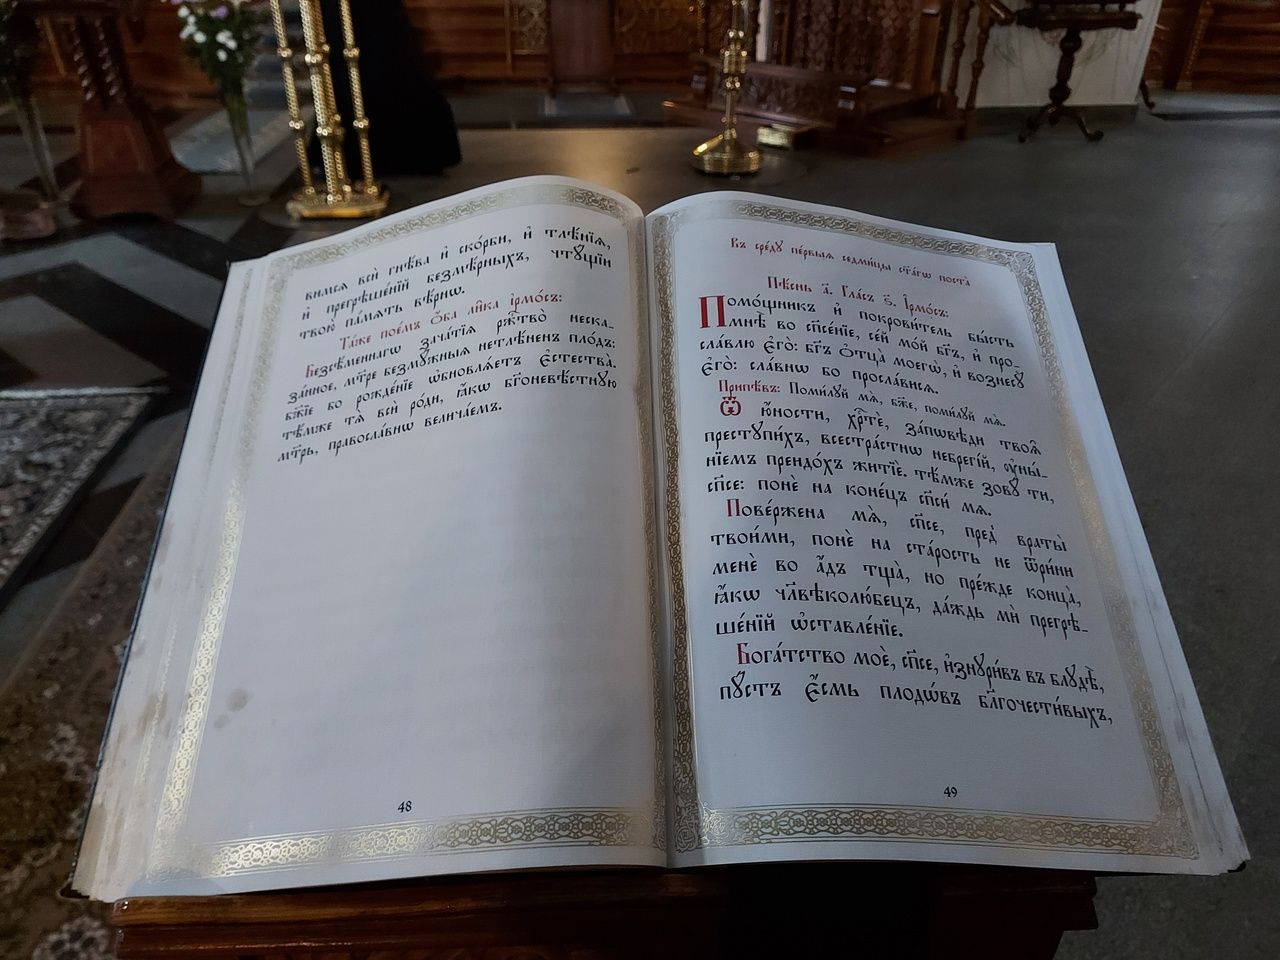 вимсѧ всѝ гнѣ́ва и҆ ско́рби, и҆ тлѣ́нїѧ,
и҆ прегрѣше́нїй безмѣ́рныхъ, чтꙋ́щїи
твою̀ па́мѧть вѣ́рнѡ.
Та́же пое́мъ ѻ҆́ба ли̑ка і҆рмо́съ:
Безсѣ́меннагѡ зача́тїѧ рж҃тво̀ неска-
за́нное, мт҃ре безмꙋ́жныѧ нетлѣ́ненъ пло́дъ:
бж҃їе во рожде́нїе ѡ҆бновлѧ́етъ є҆стества̀.
тѣ́мже тѧ̀ всѝ ро́ди, ꙗ҆́кѡ бг҃оневѣ́стнꙋю
мт҃рь, правосла́внѡ велича́емъ.
48
Въ сре́дꙋ пе́рвыѧ седми́цы ст҃а́гѡ поста̀
Пѣ́снь а҃. Гла́съ ѕ҃. І҆рмо́съ:
Помо́щникъ и҆ покрови́тель бы́сть
мнѣ̀ во сп҃се́нїе, се́й мо́й бг҃ъ, и҆ про-
сла́влю є҆го̀: бг҃ъ ѻ҆тца̀ моегѡ̀, и҆ вознесꙋ̀
є҆го̀: сла́внѡ бо просла́висѧ.
Припѣ́въ: Поми́лꙋй мѧ̀, бж҃е, поми́лꙋй мѧ̀.
Ѿ ю҆́ности, хрⷭ҇тѐ, за́пѡвѣди твоѧ̑
престꙋпи́хъ, всестра́стнѡ небрегі́й, ᲂу҆ны́-
нїемъ преидо́хъ житїѐ. тѣ́мже зовꙋ̀ ти,
сп҃се: понѐ на коне́цъ сп҃си́ мѧ.
Пове́ржена мѧ̀, сп҃се, пред̾ враты̀
твои́ми, понѐ на ста́рость не ѿри́ни
менѐ во а҆́дъ тща̀, но пре́жде конца̀,
ꙗ҆́кѡ чл҃вѣколю́бецъ, да́ждь мѝ прегрѣ-
ше́нїй ѡ҆ставле́нїе.
Бога́тство моѐ, сп҃се, и҆знꙋри́въ въ блꙋдѣ̀,
пꙋ́стъ є҆́смь плодѡ́въ бл҃гочести́выхъ,
49